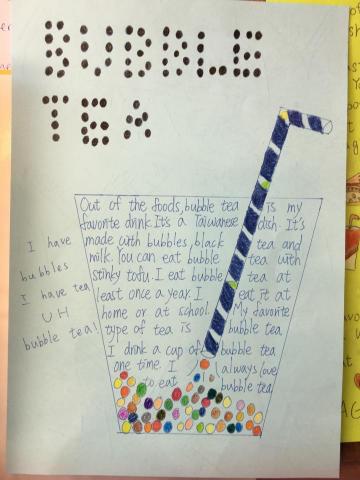 BUBBLE
TEA
Out of the foods, bubble tea is my
favorite drink. It's a Taiwanese dish. It's
made with bubbles, black tea and
milk. You can eat bubble tea with
stinky tofu. I eat bubble tea at
least once a year. I eat it at
home or at school. My favorite
type of tea is bubble tea
I drink a cup of bubble tea
one time. I always love
to eat bubble tea
I have
bubbles
I have tea
UH
bubble tea!